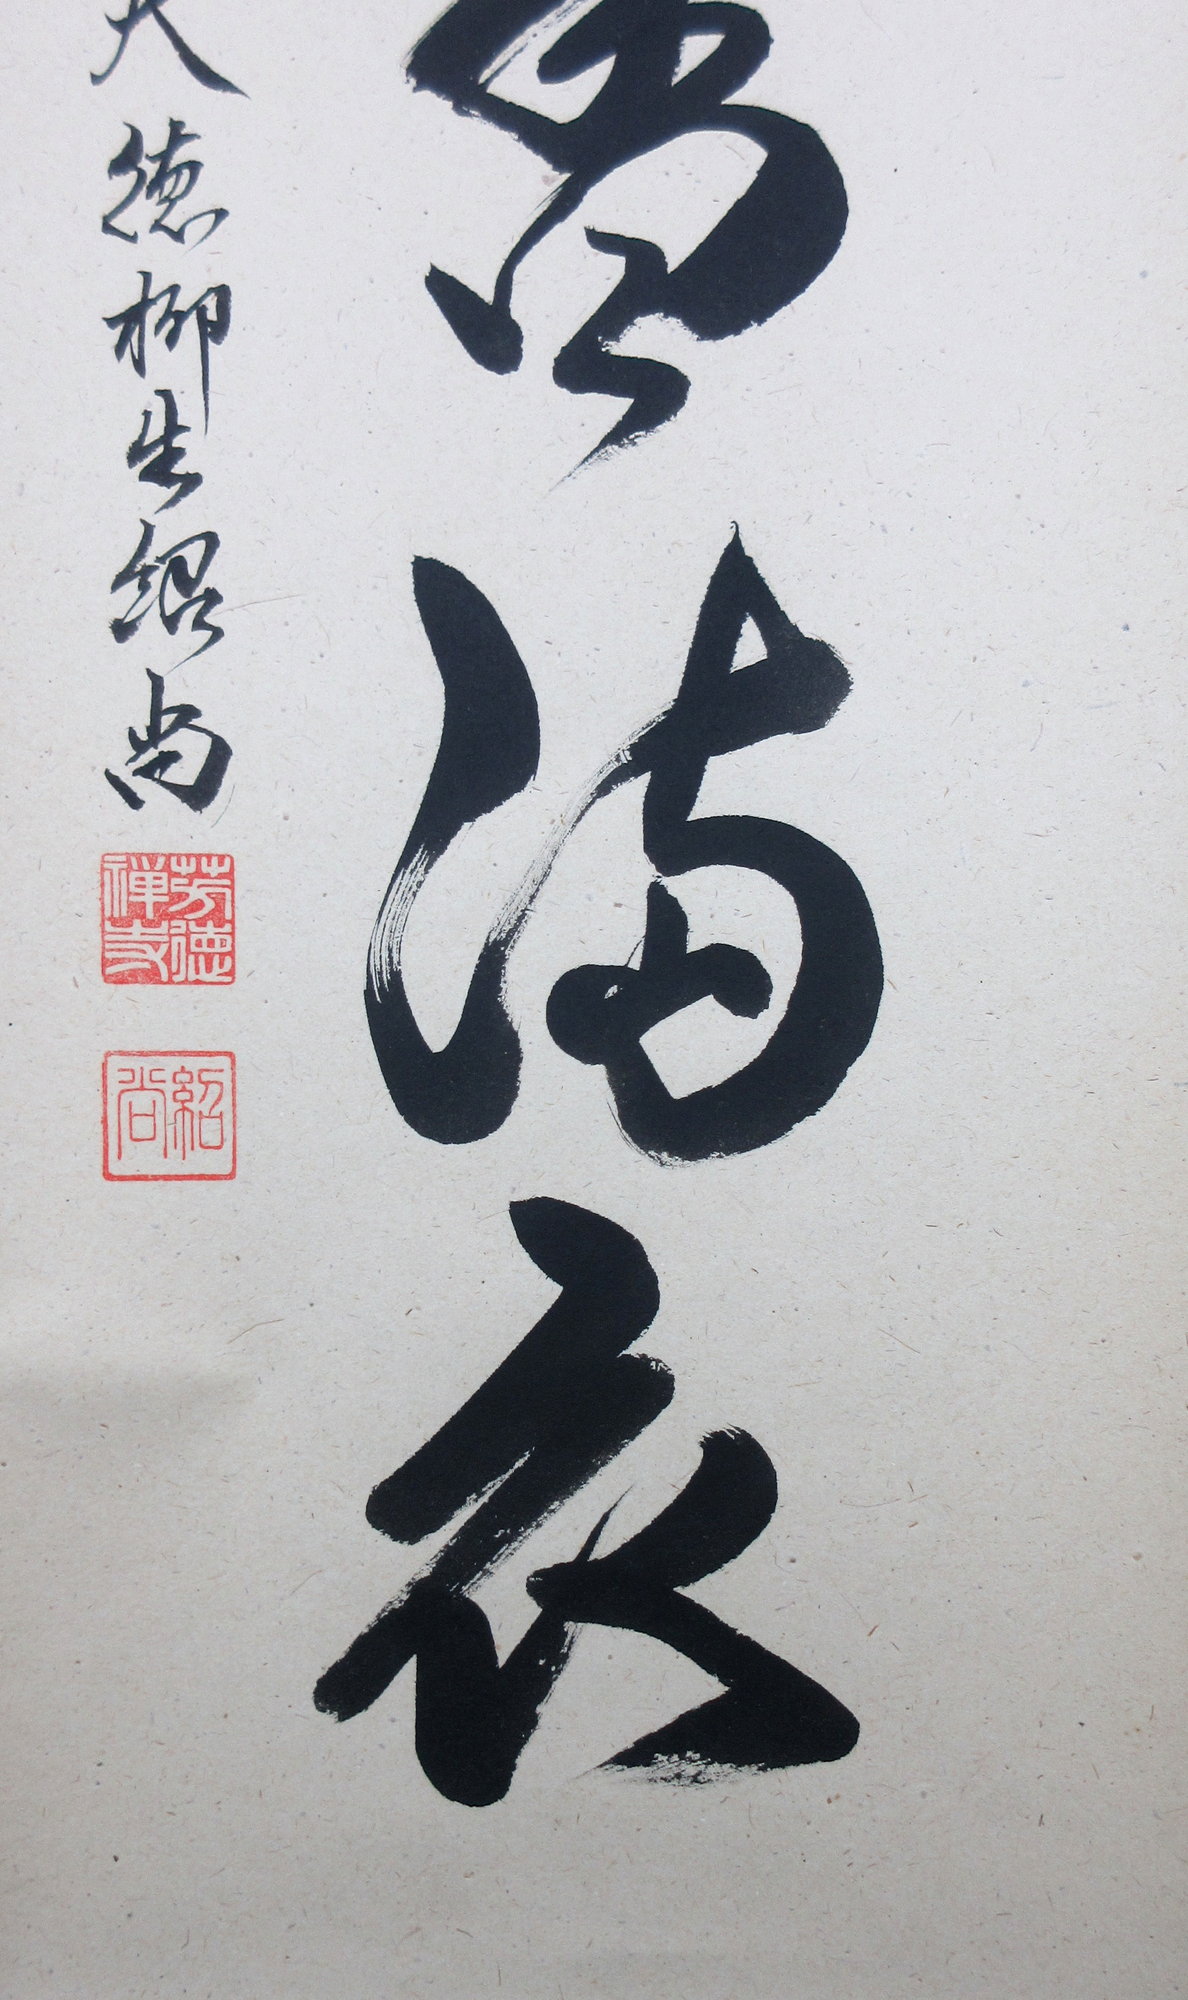 香満衣
大徳柳生紹尚
芳徳禅寺
紹尚